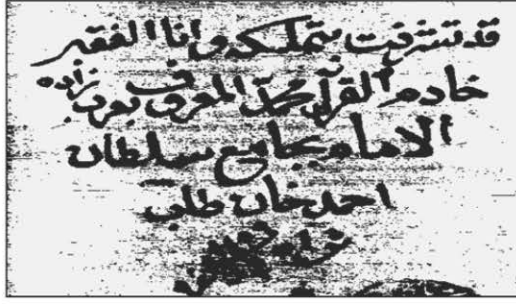 قد تشرفت بتملكه وانا الفقير
خادم القرآن محمد المعروف بعرب زاده
الامام بجامع سلطان
احمد خان طلب